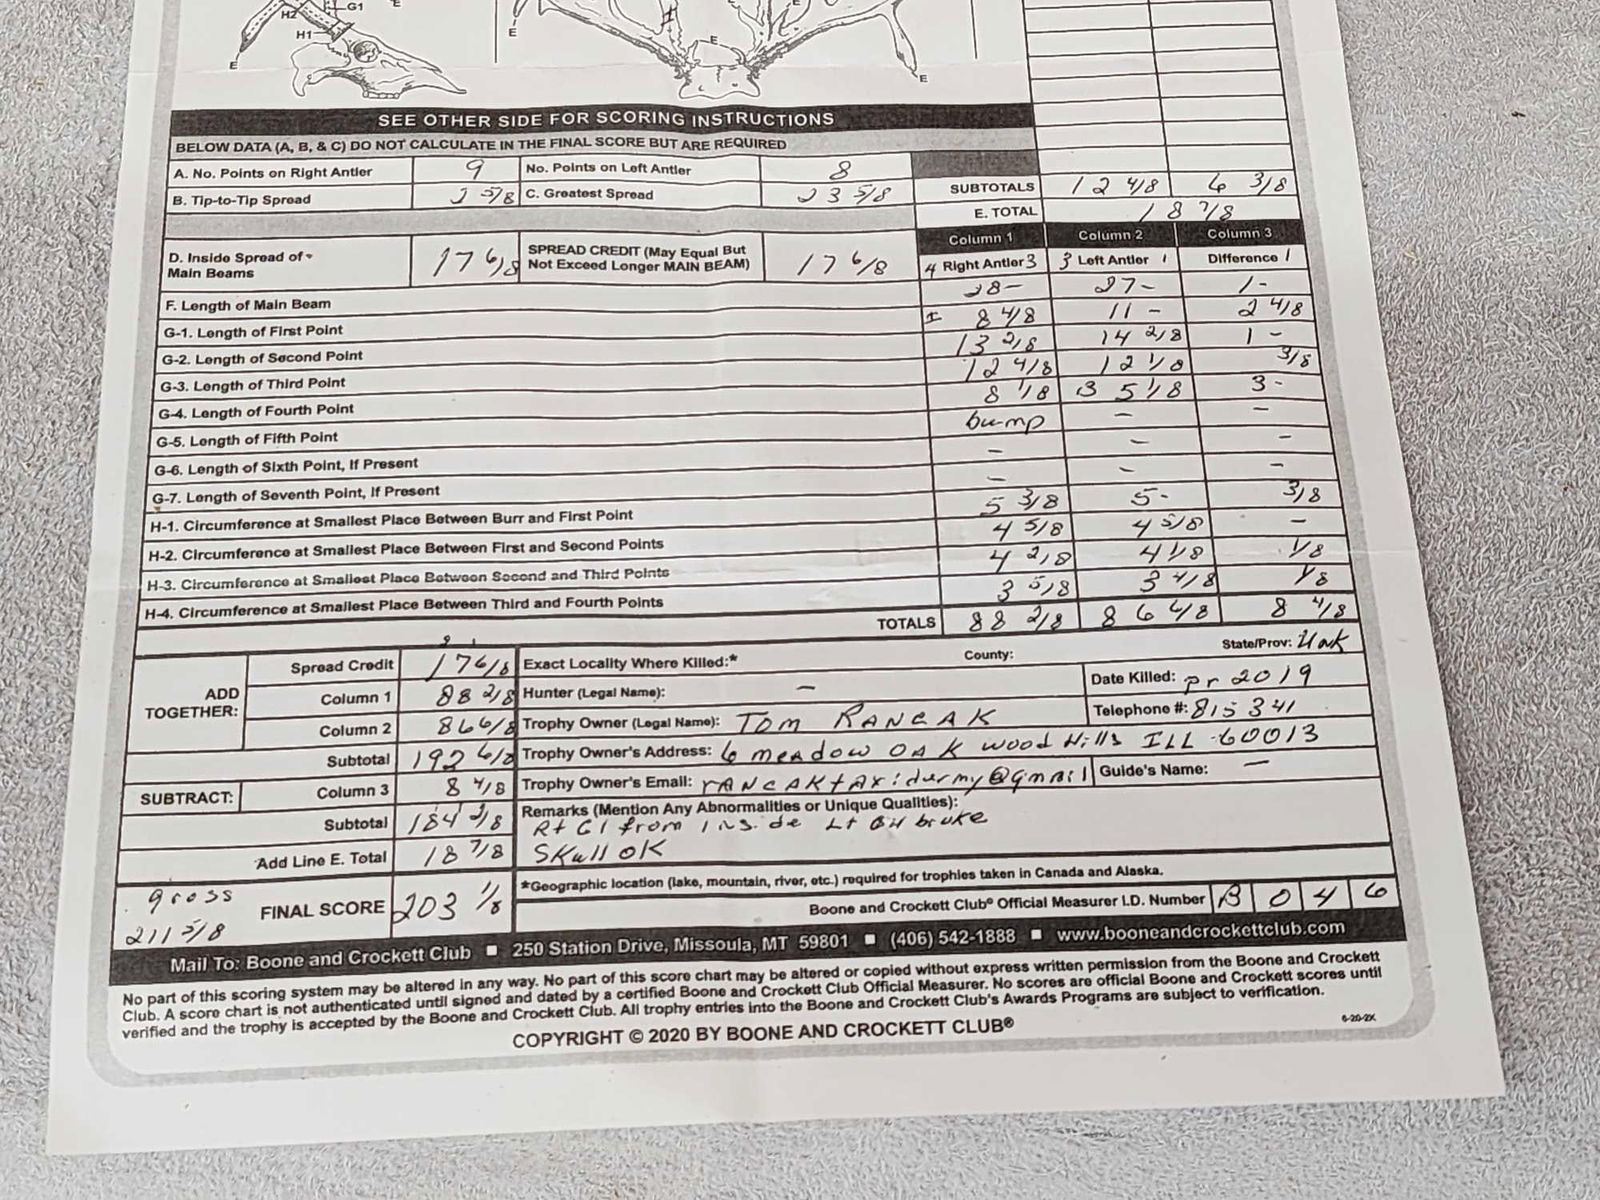 H2 G1 E
H1
E E E E
SEE OTHER SIDE FOR SCORING INSTRUCTIONS
BELOW DATA (A, B, & C) DO NOT CALCULATE IN THE FINAL SCORE BUT ARE REQUIRED
A. No. Points on Right Antler 9 No. Points on Left Antler 8
SUBTOTALS 12 4/8 6 3/8
B. Tip-to-Tip Spread 2 5/8 C. Greatest Spread 23 5/8
E. TOTAL 18 7/8
Column 1 Column 2 Column 3
D. Inside Spread of Main Beams 17 6/8 SPREAD CREDIT (May Equal But Not Exceed Longer MAIN BEAM) 17 6/8 4 Right Antler 3 3 Left Antler 1 Difference 1
F. Length of Main Beam 28- 27- 1-
G-1. Length of First Point I 8 4/8 11 - 2 4/8
G-2. Length of Second Point 13 2/8 14 2/8 1 -
G-3. Length of Third Point 12 4/8 12 1/8 3/8
G-4. Length of Fourth Point 8 1/8 B 5 1/8 3 -
G-5. Length of Fifth Point bump - -
G-6. Length of Sixth Point, If Present - - -
G-7. Length of Seventh Point, If Present - - -
H-1. Circumference at Smallest Place Between Burr and First Point 5 3/8 5- 3/8
H-2. Circumference at Smallest Place Between First and Second Points 4 5/8 4 5/8 -
H-3. Circumference at Smallest Place Between Second and Third Points 4 2/8 4 1/8 1/8
H-4. Circumference at Smallest Place Between Third and Fourth Points 3 5/8 3 4/8 1/8
TOTALS 88 2/8 86 6/8 8 4/8
ADD TOGETHER: Spread Credit 17 6/8 Exact Locality Where Killed:* County: State/Prov:
Column 1 88 2/8 Hunter (Legal Name): - Date Killed: pr 2019
Column 2 86 6/8 Trophy Owner (Legal Name): TOM RANCAK Telephone #: 815 341
Subtotal 192 6/8 Trophy Owner's Address: 6 meADOW OAK wood Hills ILL 60013
SUBTRACT: Column 3 8 4/8 Trophy Owner's Email: rANCAKtAxidermy@gmail Guide's Name: -
Subtotal 184 2/8 Remarks (Mention Any Abnormalities or Unique Qualities):
Rt G1 from inside Lt G4 broke
Add Line E. Total 18 7/8 Skull OK
*Geographic location (lake, mountain, river, etc.) required for trophies taken in Canada and Alaska.
gross 211 5/8 FINAL SCORE 203 1/8 Boone and Crockett Club® Official Measurer I.D. Number B 0 4 6
Mail To: Boone and Crockett Club ■ 250 Station Drive, Missoula, MT 59801 ■ (406) 542-1888 ■ www.booneandcrockettclub.com
No part of this scoring system may be altered in any way. No part of this score chart may be altered or copied without express written permission from the Boone and Crockett
Club. A score chart is not authenticated until signed and dated by a certified Boone and Crockett Club Official Measurer. No scores are official Boone and Crockett scores until
verified and the trophy is accepted by the Boone and Crockett Club. All trophy entries into the Boone and Crockett Club's Awards Programs are subject to verification.
COPYRIGHT © 2020 BY BOONE AND CROCKETT CLUB®